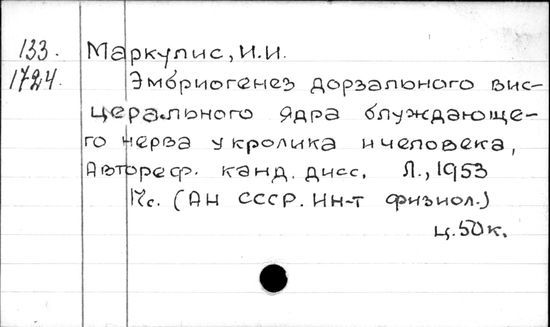 133. Маркулис, И.И.
1724. Эмбриогенез дорзального вис-
церального ядра блуждающе-
го нерва у кролика и человека,
Автореф. канд. дисс. Л., 1953
17с. (АН СССР. Ин-т физиол.)
ц. 50к.